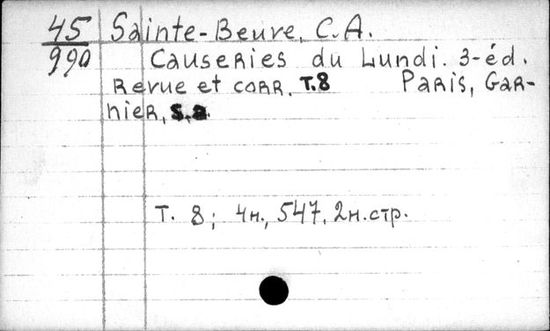 45 Sainte-Beuve, C.A.
990 Causeries du Lundi. 3-éd.
Revue et corr. T.8 Paris, Gar-
nier, s.a.
T. 8; 4н., 547, 2н.стр.